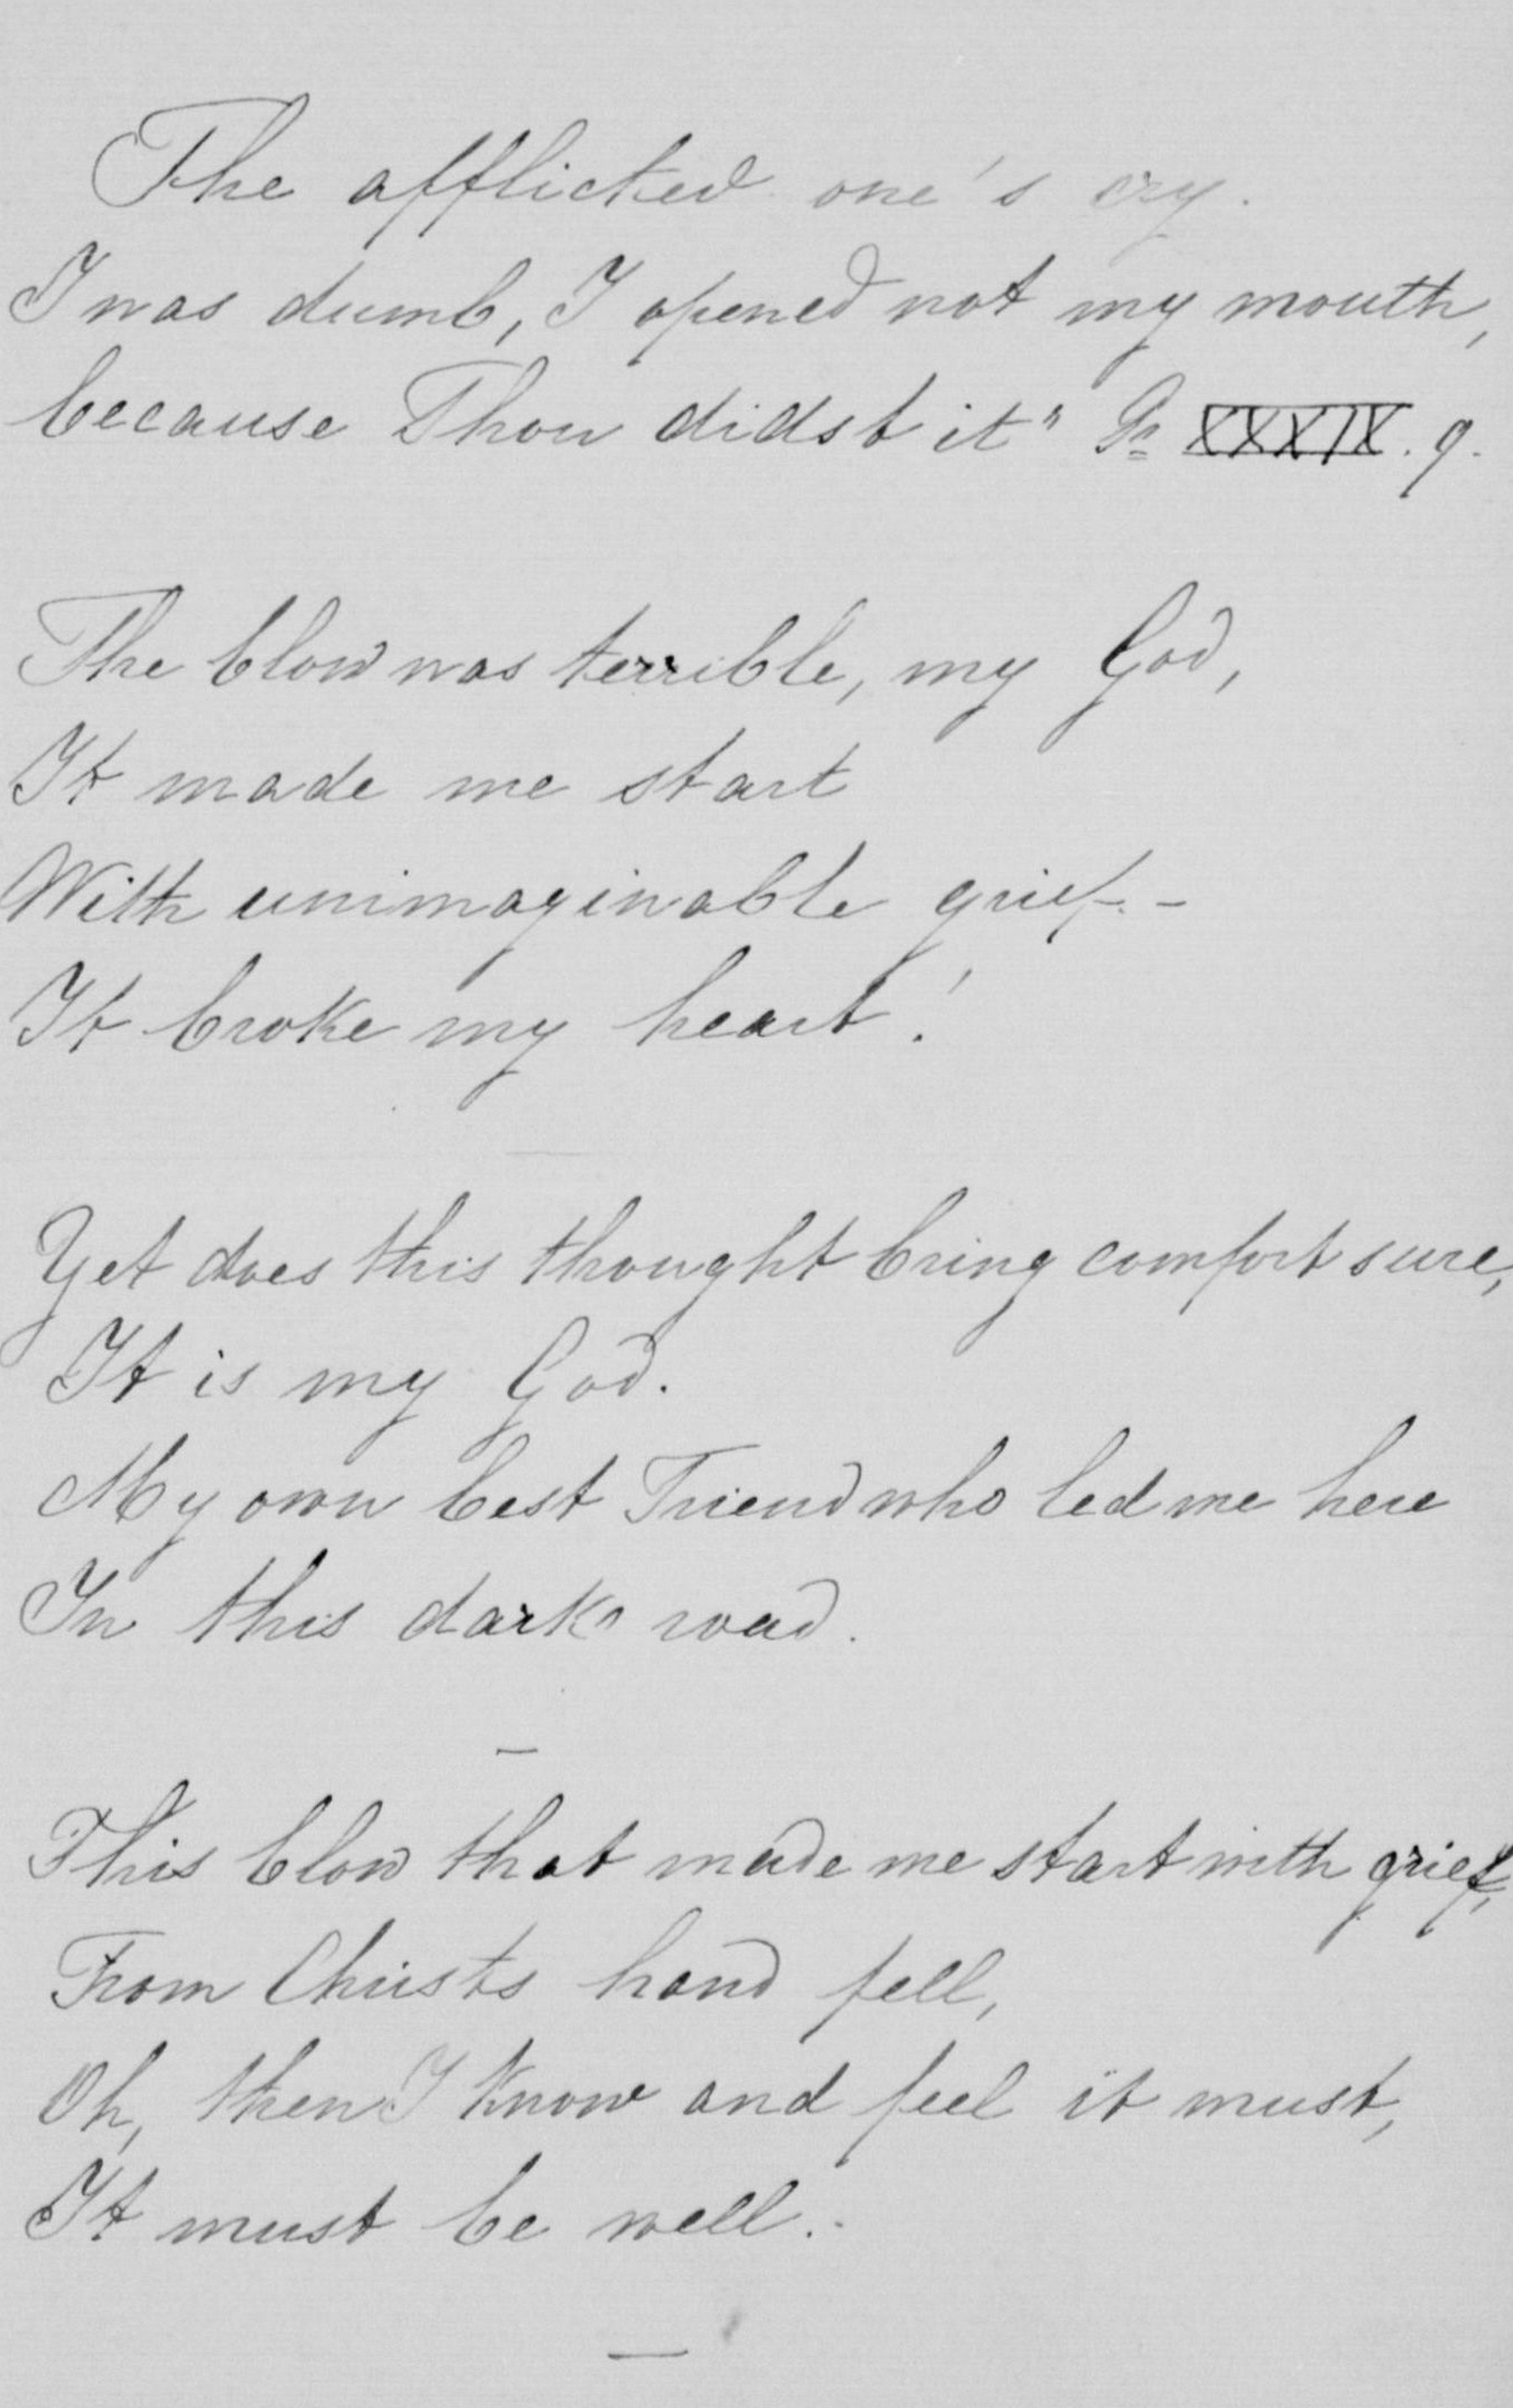 The afflicted one's cry.
I was dumb, I opened not my mouth,
because Thou didst it" Ps XXXIX. 9.
The blow was terrible, my God,
It made me start
With unimaginable grief. -
It broke my heart!
Yet does this thought bring comfort sure,
It is my God.
My own best Friend who led me here
In this dark road.
This blow that made me start with grief,
From Christs hand fell,
Oh, then I know and feel it must,
It must be well. -